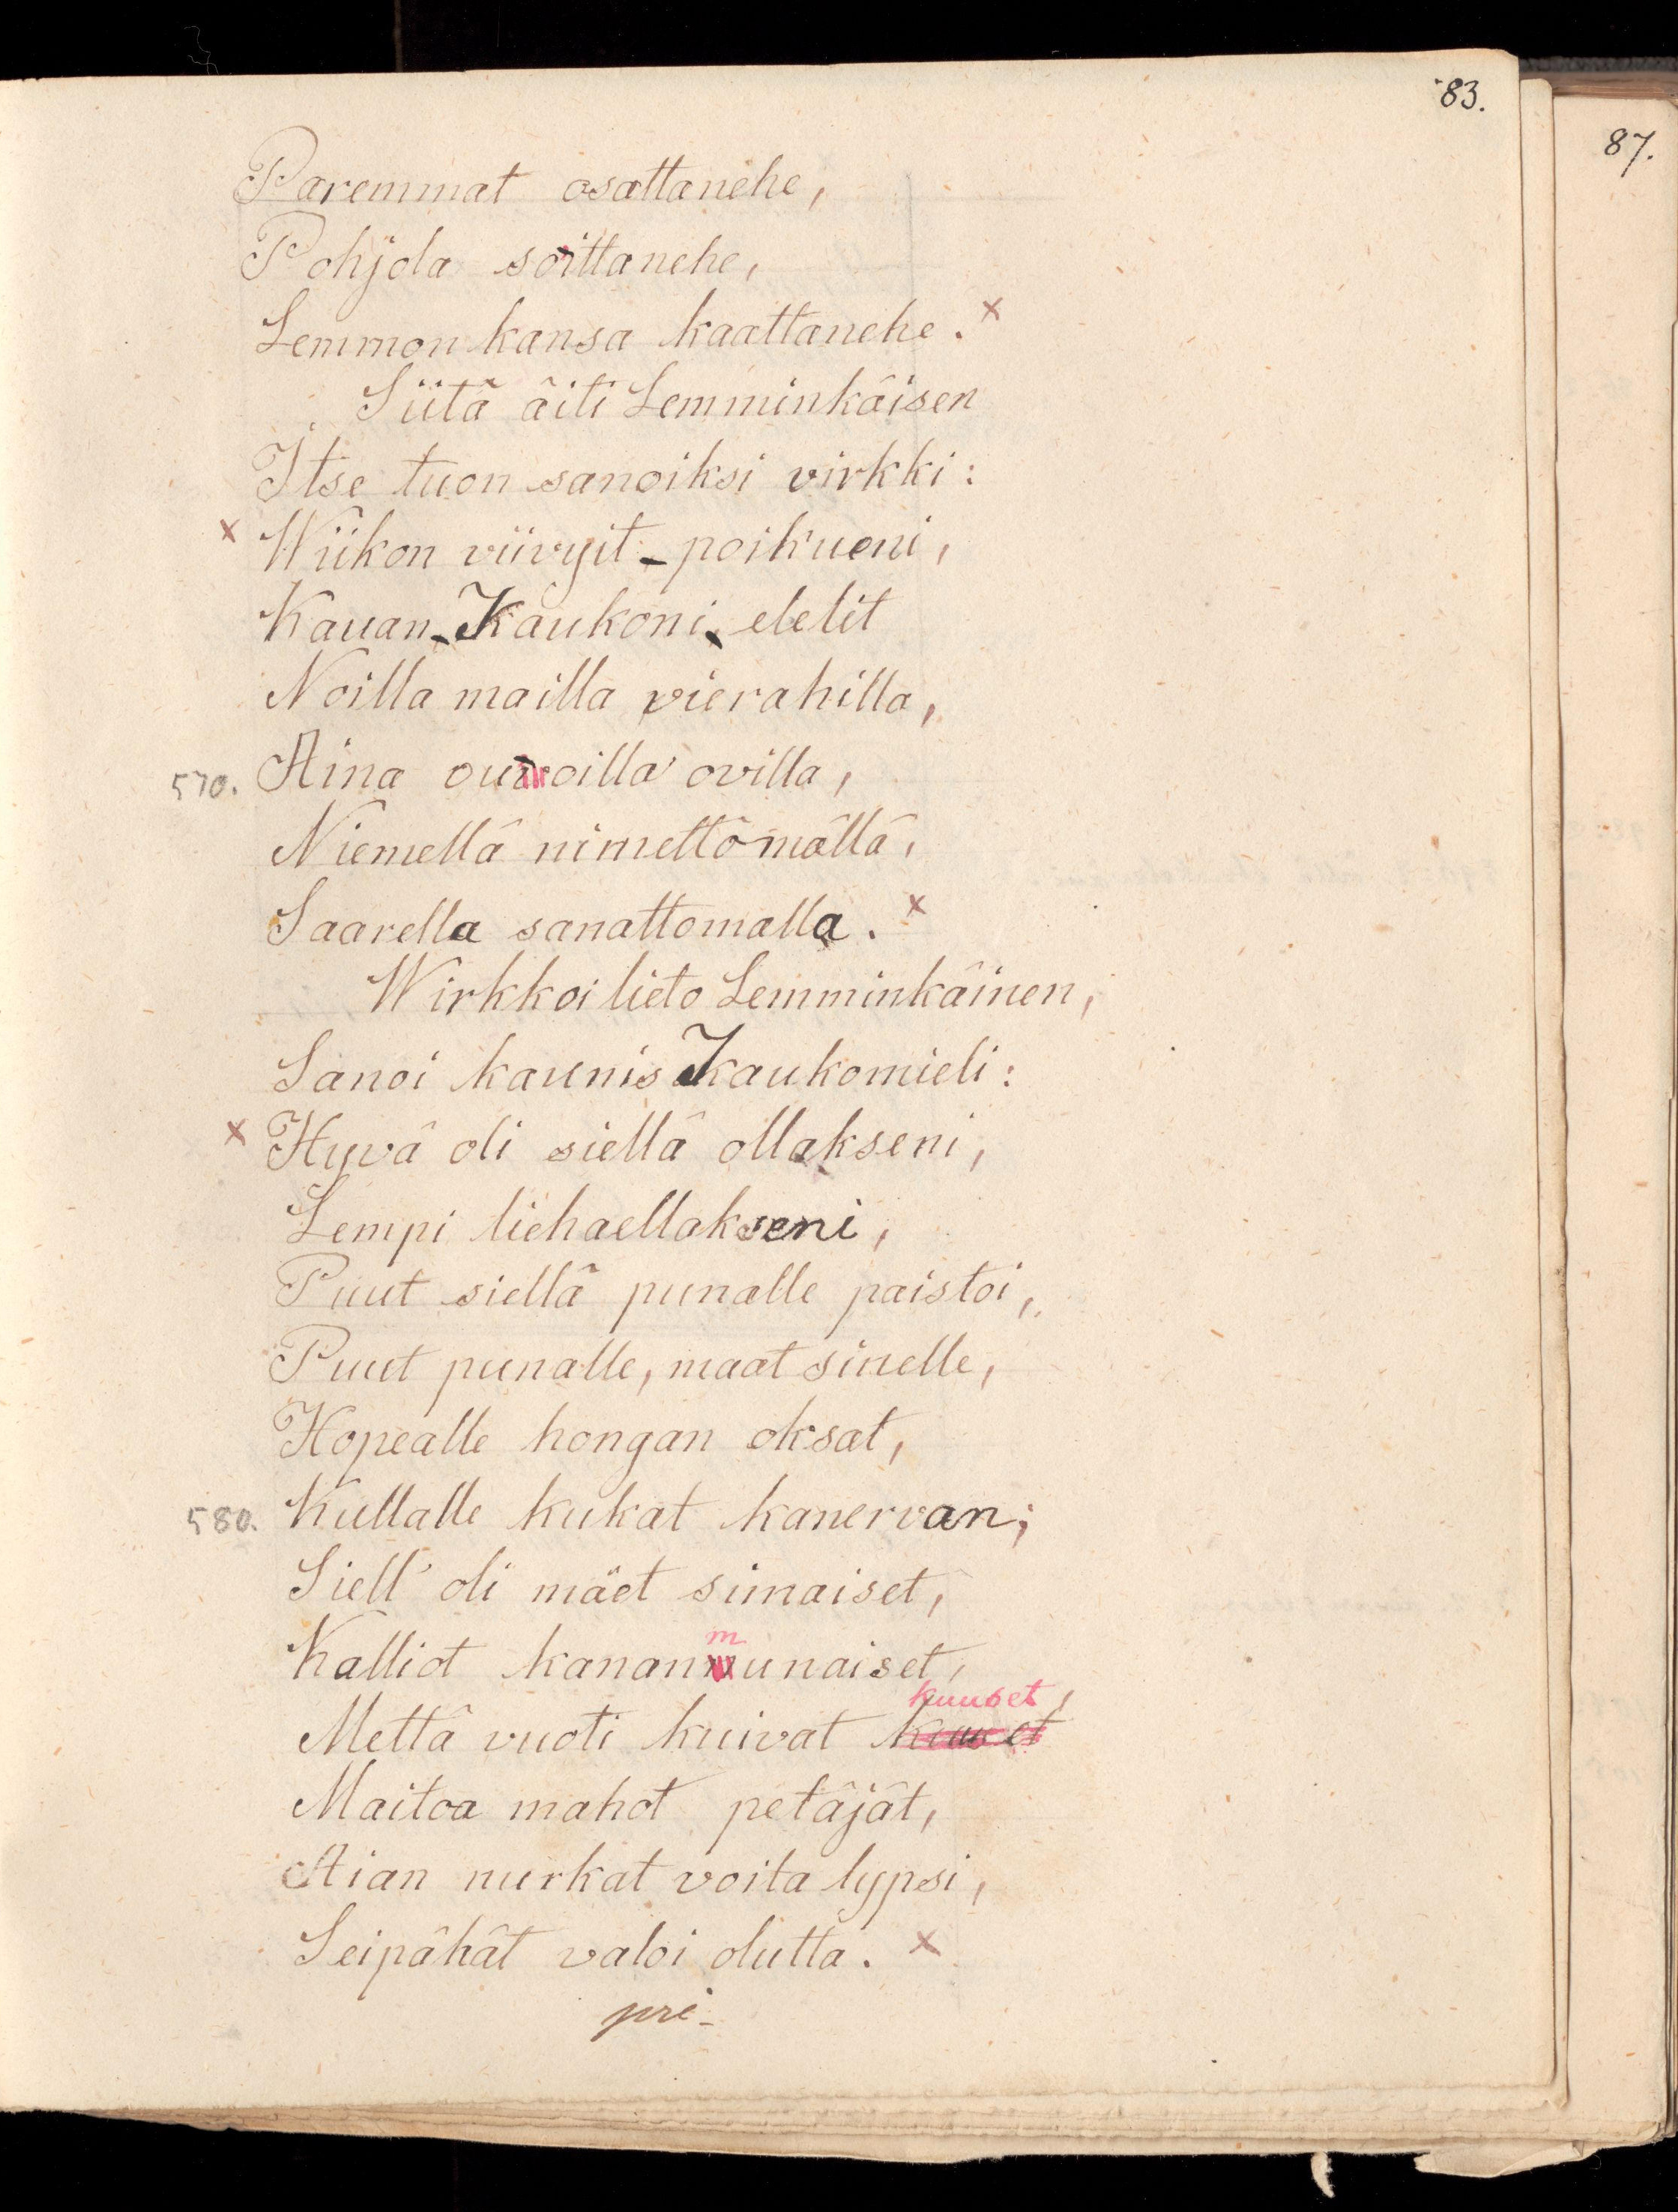 83.
87.
Paremmat osattanehe,
Pohjola soittanehe,
Lemmon kansa kaattanehe. x
Siitä äiti Lemminkäisen
Itse tuon sanoiksi virkki:
x Wiikon viivyit - poik'ueni,
Kauan - Kaukoni, elelit
Noilla mailla vierahilla,
570. Aina ouoilla ovilla,
Niemellä nimettömällä,
Saarella sanattomalla. x
Wirkkoi lieto Lemminkäinen,
Sanoi kaunis Kaukomieli:
x Hyvä oli siellä ollakseni,
Lempi liehaellakseni,
Puut siellä punalle paistoi,
Puut punalle, maat sinelle,
Hopealle hongan oksat,
580. Kullalle kukat kanervan;
Siell' oli mäet simaiset,
m
Kalliot kananmunaiset,
kuuset,
Mettä vuoti kuivat kuuset
Maitoa mahot petäjät,
Aian nurkat voita lypsi,
Seipähät valoi olutta. x
pri-